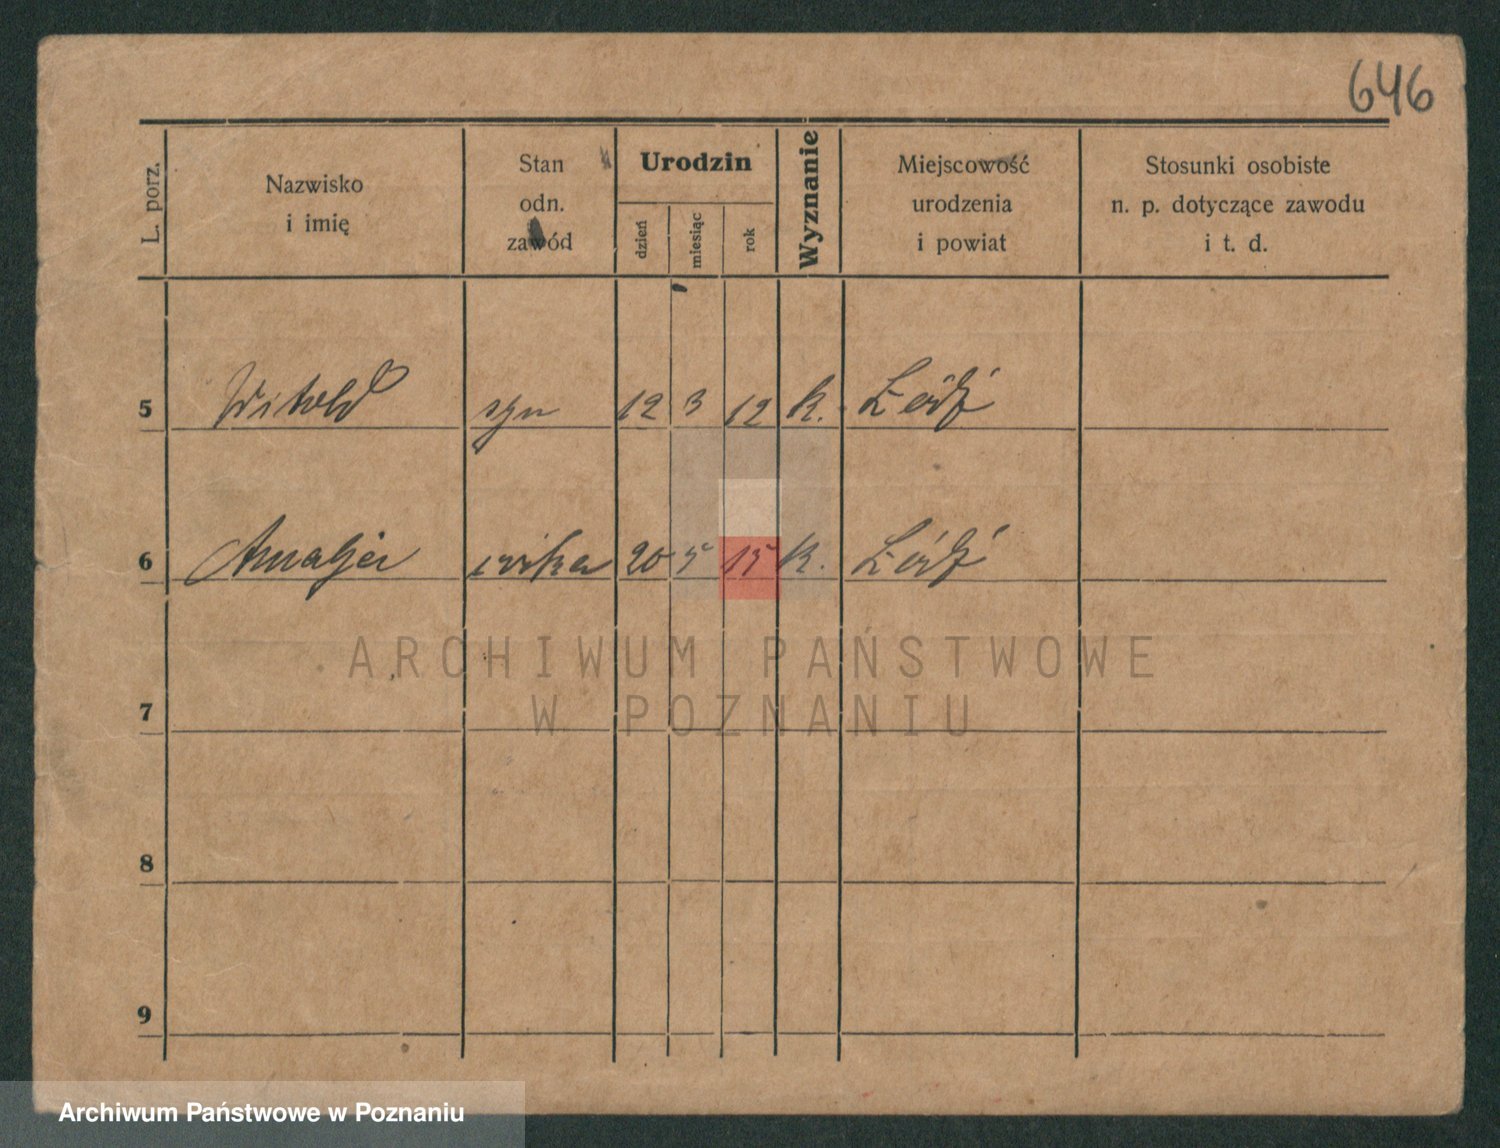 646
L. porz.
Nazwisko
i imię
Stan
odn.
zawód
Urodzin
dzień
miesiąc
rok
Wyznanie
Miejscowość
urodzenia
i powiat
Stosunki osobiste
n. p. dotyczące zawodu
i t. d.
5 Witold syn 12 3 12 k. Łódź
6 Amalja 20 5 15 k. Łódź
ARCHIWUM PAŃSTWOWE
W POZNANIU
7
8
9
Archiwum Państwowe w Poznaniu